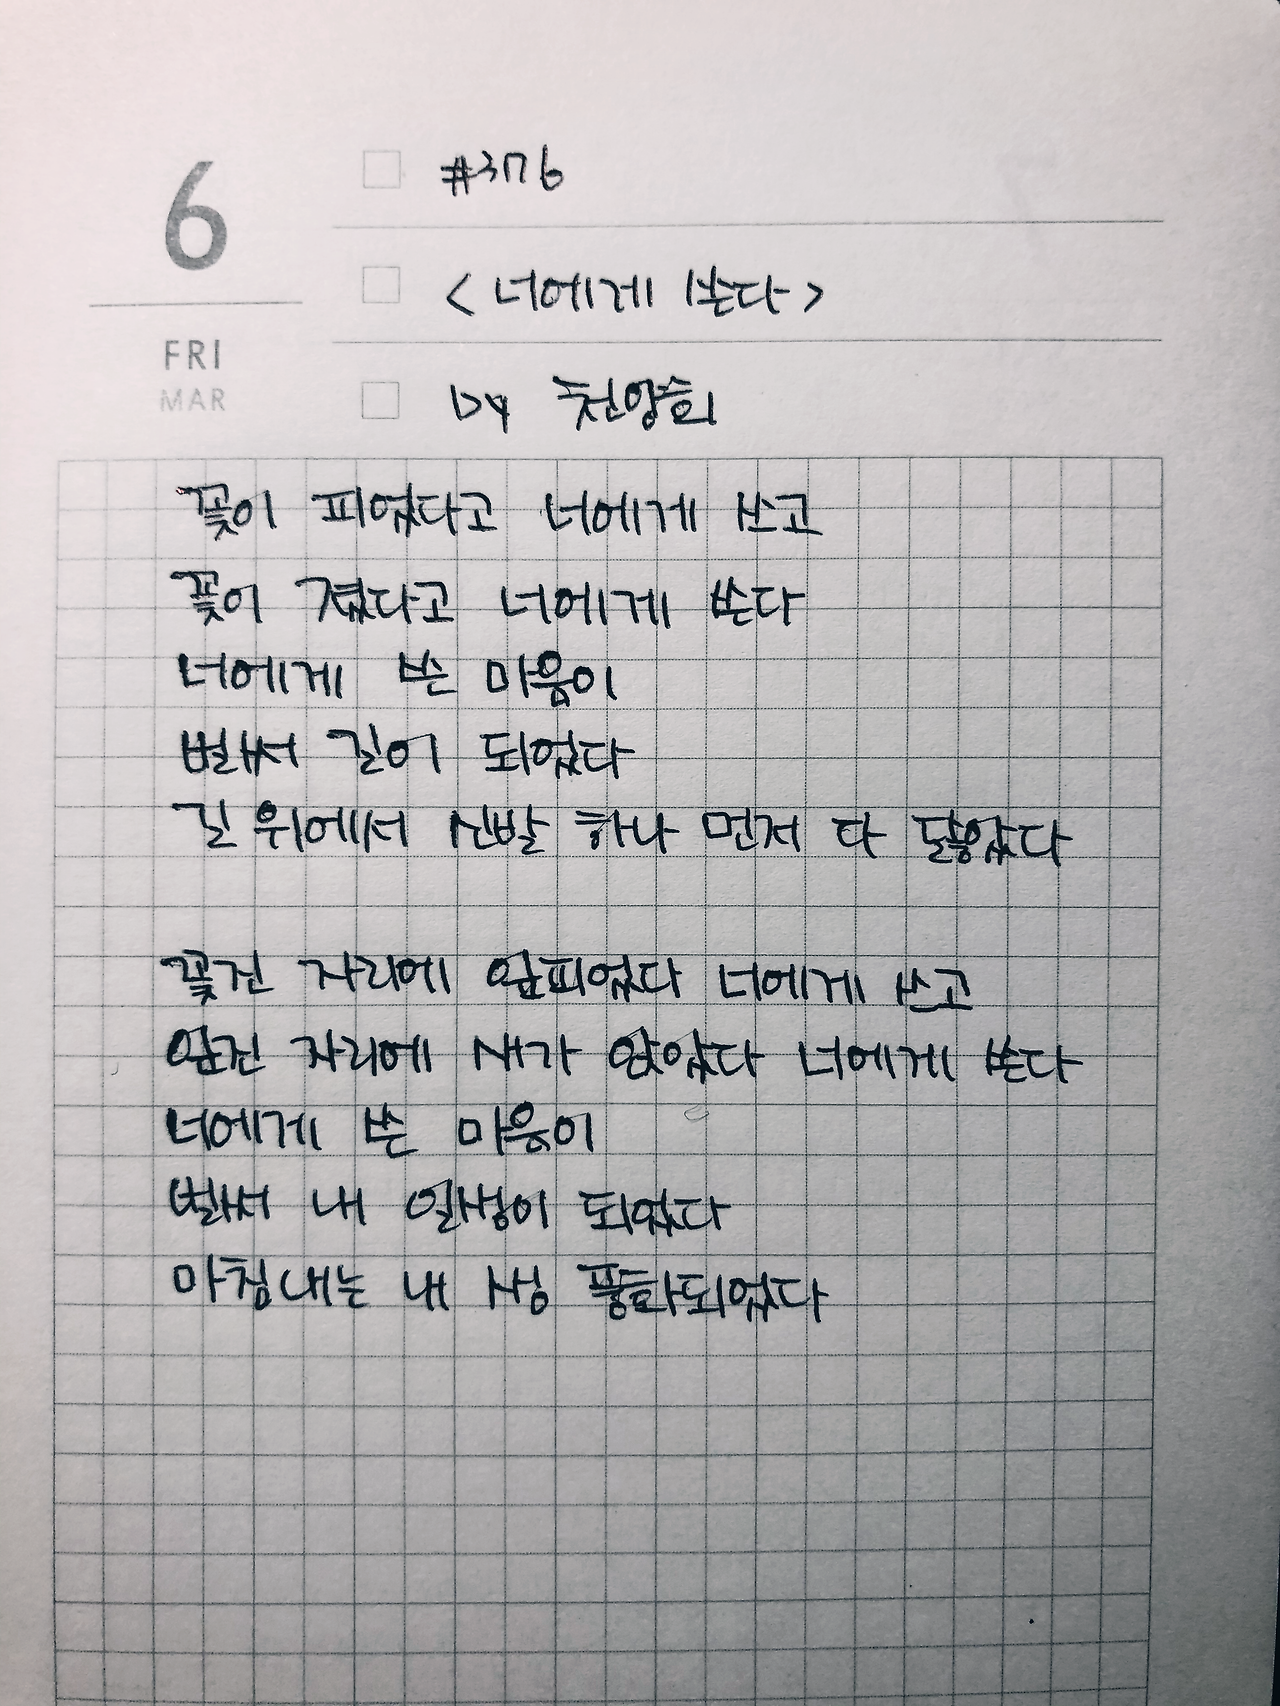 6
FRI
MAR
#376
<너에게 쓴다>
by 천양희
꽃이 피었다고 너에게 쓰고
꽃이 졌다고 너에게 쓴다
너에게 쓴 마음이
벌써 길이 되었다
길 위에서 신발 하나 먼저 다 닳았다
꽃진 자리에 잎피었다 너에게 쓰고
잎진 자리에 새가 앉았다 너에게 쓴다
너에게 쓴 마음이
벌써 내 일생이 되었다
마침내는 내 생 풍화되었다